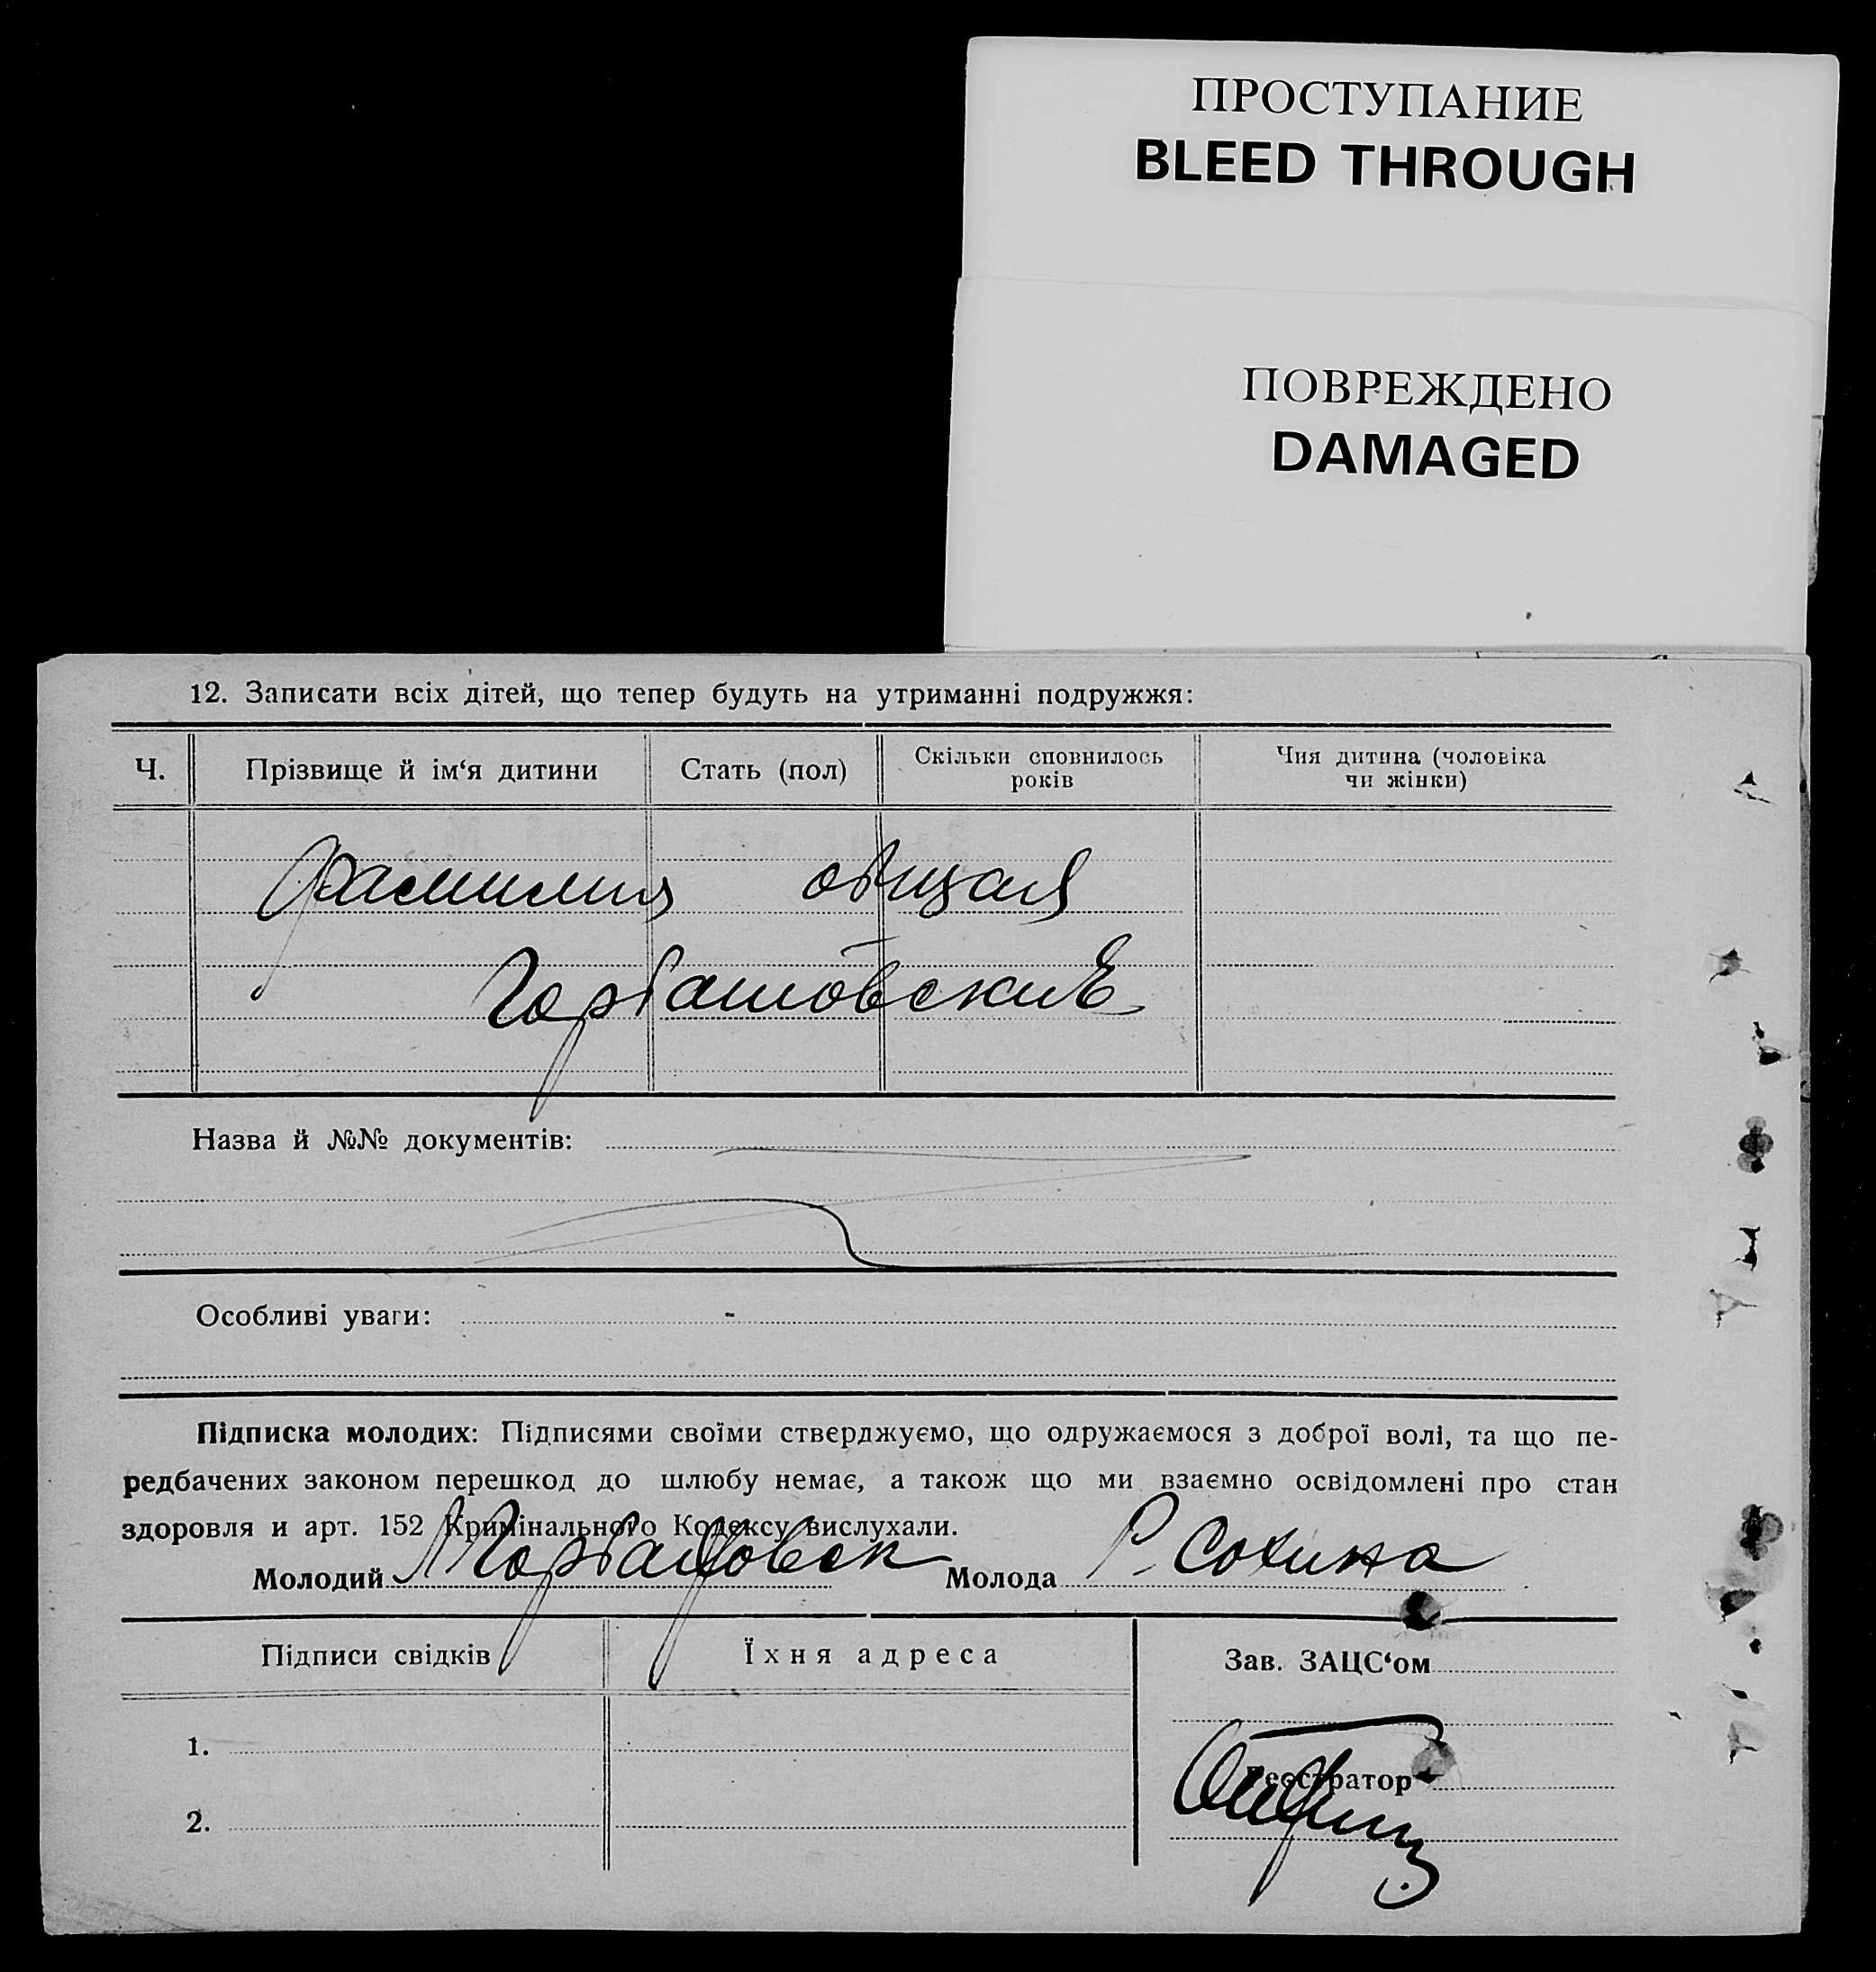 ПРОСТУПАНИЕ
BLEED THROUGH
ПОВРЕЖДЕНО
DAMAGED
12. Записати всіх дітей, що тепер будуть на утриманні подружжя:
Ч. Прізвище й ім‘я дитини Стать (пол) Скільки сповнилось років Чия дитина (чоловіка чи жінки)
Фамилия общая
Горбатовские
Назва й №№ документів:
Особливі уваги: -
Підписка молодих: Підписями своїми стверджуємо, що одружаємося з доброї волі, та що пе-
редбачених законом перешкод до шлюбу немає, а також що ми взаємно освідомлені про стан
здоровля и арт. 152 Кримінального Кодексу вислухали.
Молодий Молода Р. Сохина
Підписи свідків Їхня адреса Зав. ЗАЦС‘ом
1.
Реєстратор
2.